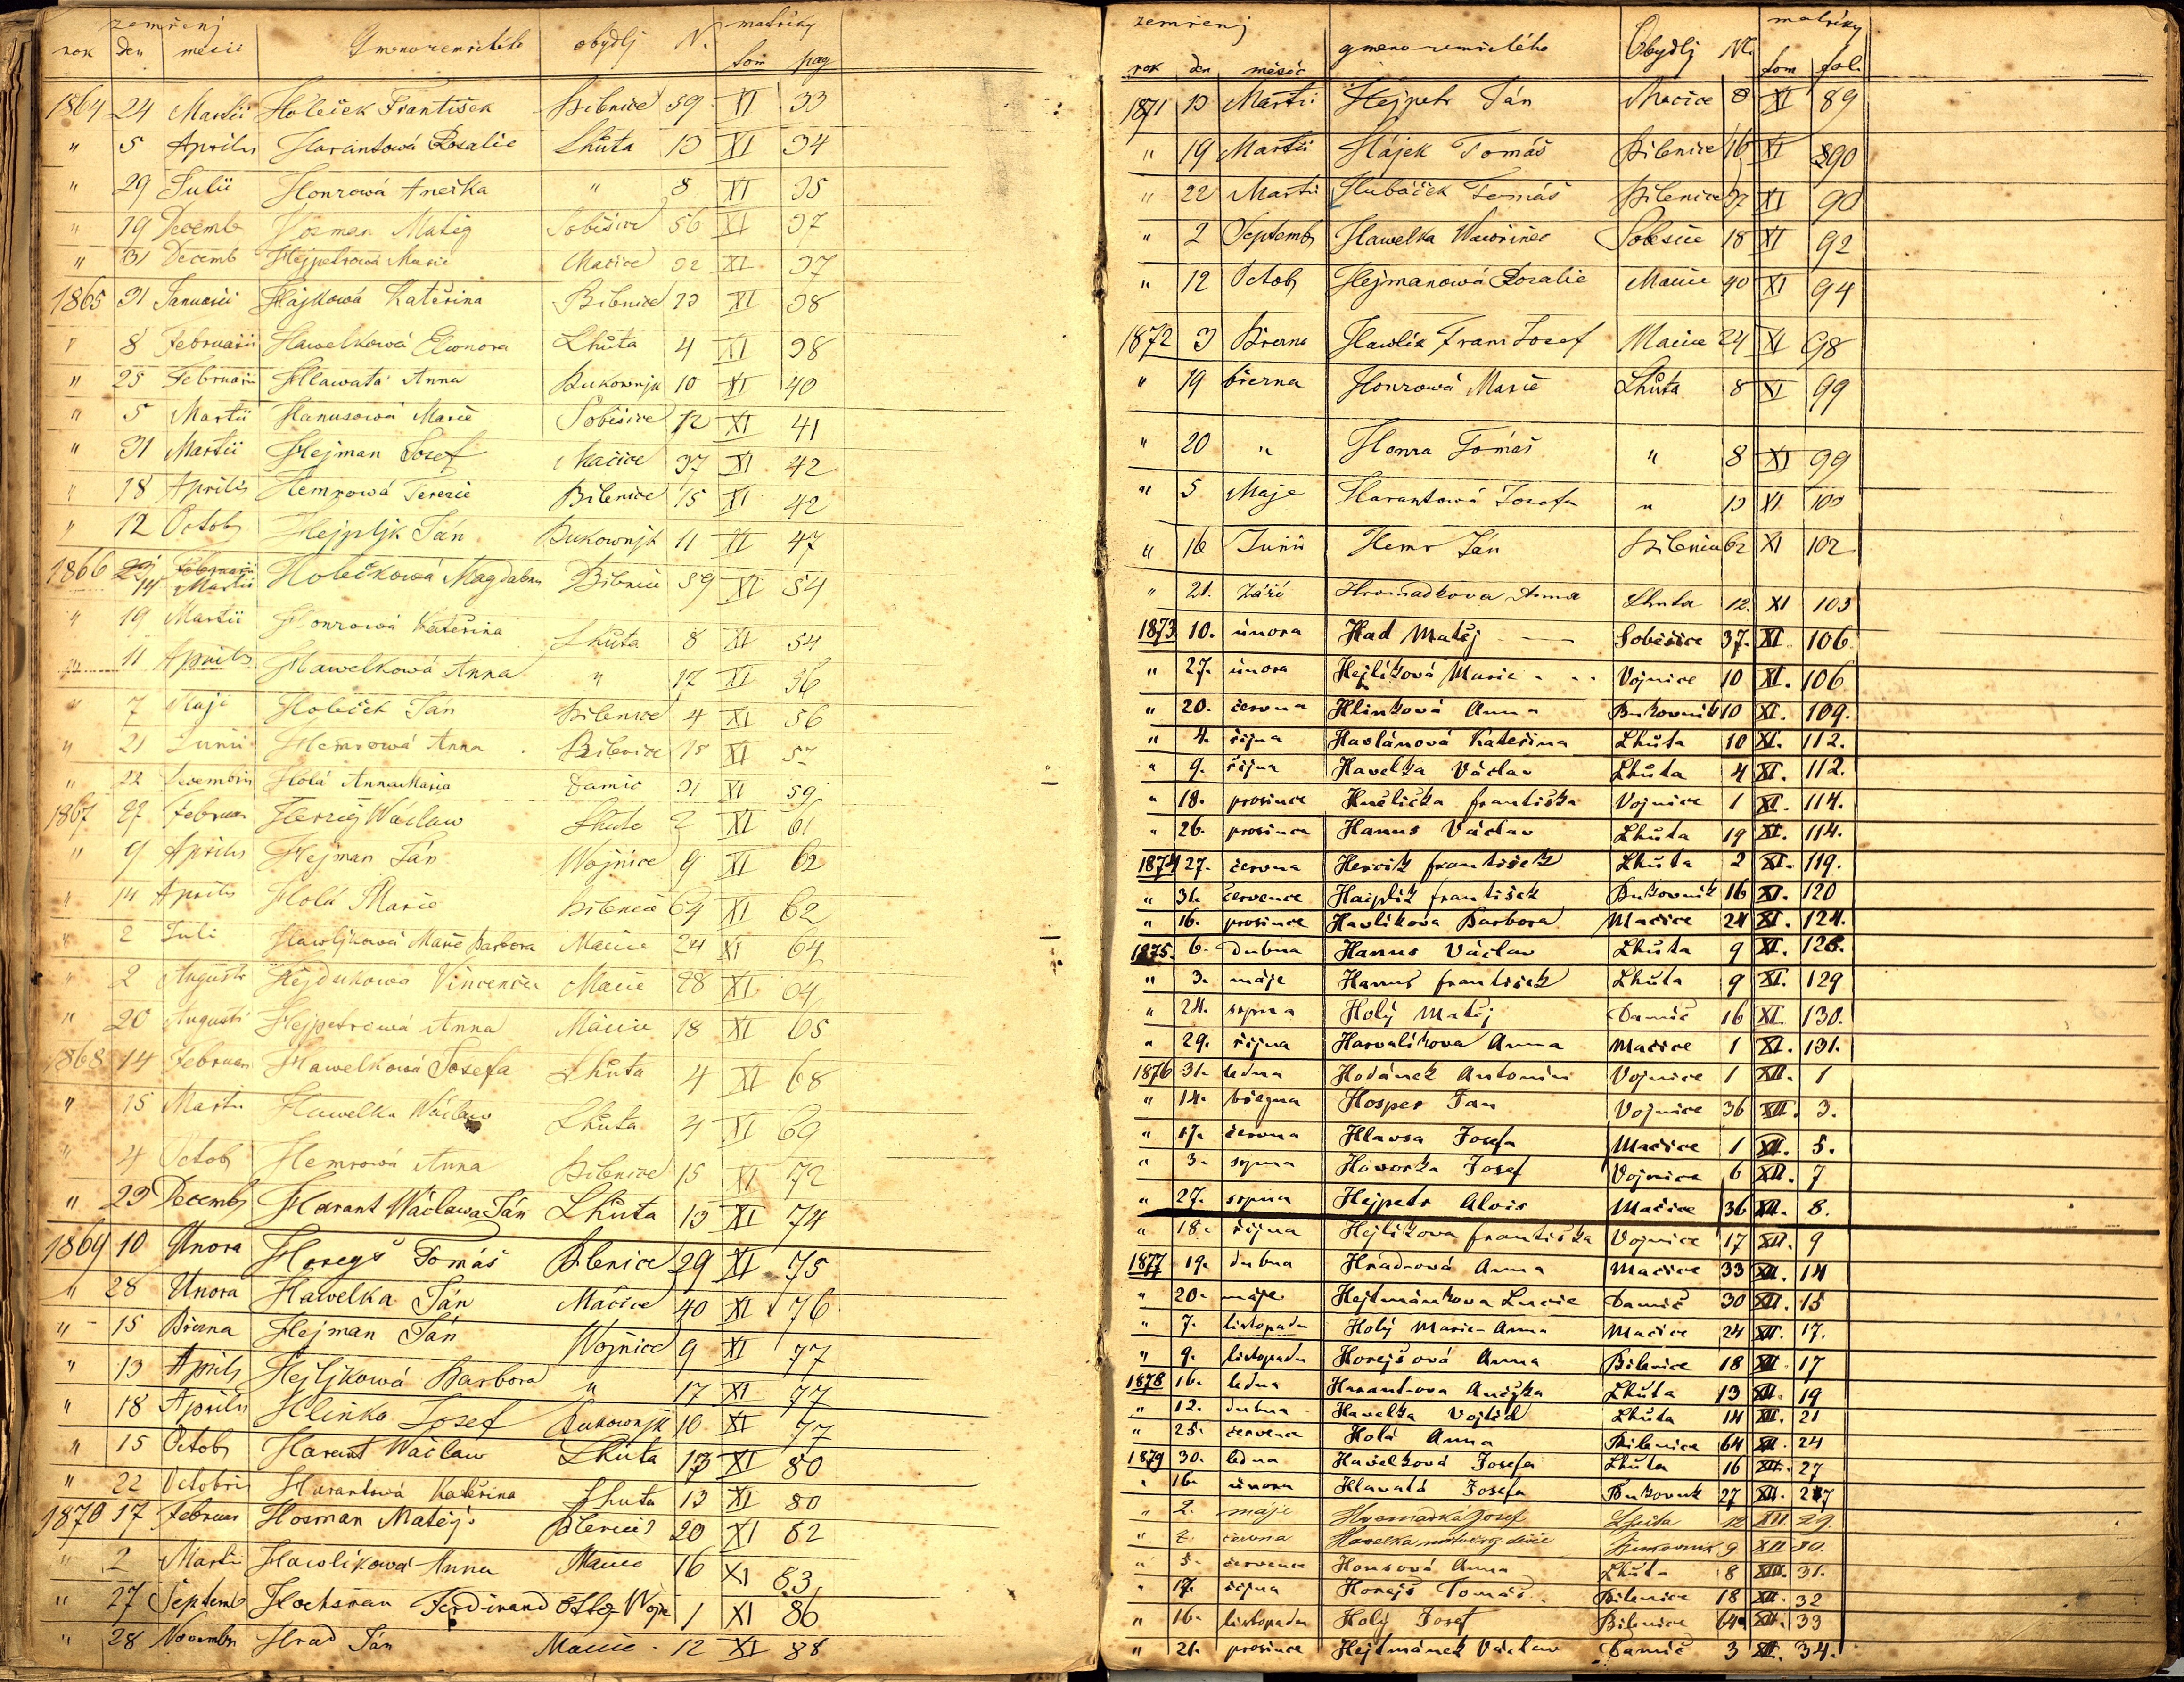 zemřenj matriky
rok den měsíc Gméno zemřelého obydlj N. tom pag
1864 24 Martii Holeček František Bilenice 59 XI 33
" 5 Aprilis Harantowá Rosalie Lhůta 13 XI 34
" 29 Julii Honzowá Anežka " 8 XI 35
" 19 Decemb Hosman Matěg Soběšice 56 XI 37
" 31 Decemb Hejpetrowá Marie Mačice 32 XI 37
1865 31 Januarii Hájkowá Kateřina Bilenice 23 XI 38
" 8 Februarii Hawelkowá Eleonora Lhůta 4 XI 38
" 25 Februarii Hlawatá Anna Bukownjk 10 XI 40
" 5 Martii Hanusowá Marie Soběšice 12 XI 41
" 31 Martii Hejman Josef Mačice 37 XI 42
" 18 Aprilis Hemrowá Terezie Bilenice 15 XI 42
" 12 Octob Hejpljk Ján Bukownjk 11 XI 47
1866 14 Martii Holečkowá Magdalena Bilenice 59 XI 54
" 19 Martii Honzowá Kateřina Lhůta 8 XI 54
" 11 Aprilis Hawelkowá Anna " 17 XI 56
" 7 Maje Holeček Ján Bilenice 4 XI 56
" 21 Junii Hemrowá Anna Bilenice 15 XI 57
" 22 Decembris Holá Anna Maria Damic 31 XI 59
1867 27 Februar Herzig Wáclaw Lhůta 2 XI 61
" 9 Aprilis Hejman Ján Wojnice 9 XI 62
" 14 Aprilis Holá Marie Bilenice 64 XI 62
" 2 Juli Hawljkowá Marie Barbora Mačice 24 XI 64
" 2 Augusti Hejdukowá Vincencie Mačice 28 XI 64
" 20 Augusti Hejpetrowá Anna Mačice 18 XI 65
1868 14 Februar Hawelkowá Josefa Lhůta 4 XI 68
" 15 Martii Hawelka Wáclaw Lhůta 4 XI 69
" 4 Octob Hemrowá Anna Bilenice 15 XI 72
" 23 Decemb Harant Wáclaw a Ján Lhůta 13 XI 74
1869 10 Unora Horegš Tomáš Bilenice 29 XI 75
" 28 Unora Hawelka Ján Mačice 40 XI 76
" 15 Března Hejman Ján Wojnice 9 XI 77
" 13 Aprilis Hejljkowá Barbora " 17 XI 77
" 18 Aprilis Hlinka Josef Bukownjk 10 XI 77
" 15 Octob Harant Waclaw Lhůta 13 XI 80
" 22 Octobris Harantowá Kateřina Lhuta 13 XI 80
1870 17 Februar Hosman Matěj Bilenice 20 XI 82
" 2 Martii Hawlikowá Anna Mačice 16 XI 83
" 27 Septemb Hochsman Ferdinand Otto Wojn 1 XI 86
" 28 Novembr Hrad Ján Mačice 12 XI 88
zemřenj matriky
rok den měsíc gmeno zemřelého Obydlj N. tom fol.
1871 13 Martii Hejpetr Ján Mačice 8 XI 89
" 19 Martii Hájek Tomáš Bilenice 16 XI 90
" 22 Martii Hubáček Tomáš Bilenice 37 XI 90
" 2 Septemb Hawelka Wawřinec Soběšice 18 XI 92
" 12 Octob Hejmanowá Rozalie Mačice 40 XI 94
1872 3 Března Hawlik Franc Josef Mačice 24 XI 98
" 19 března Honzowá Marie Lhůta 8 XI 99
" 20 " Honza Tomáš " 8 XI 99
" 5 Maje Harantowá Josefa " 13 XI 100
" 16 Junii Hemr Ján Bilenice 62 XI 102
" 21. září Hromadkova Anna Lhuta 12. XI 103
1873 10. února Had Matěj Soběšice 37. XI. 106.
" 27. února Hejlíková Marie Vojnice 10 XI. 106
" 20. června Hlinková Anna Bukovník 10 XI. 109.
" 4. října Haslánová Kateřina Lhůta 10 XI. 112.
" 9. října Havelka Václav Lhůta 4 XI. 112.
" 18. prosince Hučlička františka Vojnice 1 XI. 114.
" 26. prosince Hanus Václav Lhůta 19 XI. 114.
1874 27. června Hercik františek Lhůta 2 XI. 119.
" 31. července Hajplík františek Bukovník 16 XI. 120
" 16. prosince Havlíkova Barbora Mačice 24 XI. 124.
1875. 6. dubna Hanus Václav Lhůta 9 XI. 128.
" 3. máje Hanus františek Lhůta 9 XI. 129
" 24. srpna Holý Matěj Damíč 16 XI. 130.
" 29. října Horvalíkova Anna Mačice 1 XI. 131.
1876 31. ledna Hodánek Antonín Vojnice 1 XII. 1
" 14. března Hosper Jan Vojnice 36 XII. 3.
" 17. června Hlavsa Josefa Mačice 1 XII. 5.
" 3. srpna Hovorka Josef Vojnice 6 XII. 7
" 27. srpna Hejpetr Alois Mačice 36 XII. 8.
" 18. října Hejlíkova františka Vojnice 17 XII. 9
1877 19. dubna Hradcová Anna Mačice 33 XII. 14
" 20. máje Hejtmánkova Lucie Damíč 30 XII. 15
" 7. listopadu Holý Maria Anna Mačice 24 XII. 17.
" 9. listopadu Horejšová Anna Bilenice 18 XII. 17
1878 16. ledna Harantova Anežka Lhůta 13 XII. 19
" 12. dubna Havelka Vojtěch Lhůta 14 XII. 21
" 25. července Holá Anna Bilenice 64 XII. 24
1879 30. ledna Havelková Josefa Lhůta 16 XII. 27
" 16. února Hlavatá Josefa Bukovník 27 XII. 27
" 2. máje Hromadka Josef Lhůta 12 XII 29.
" 7. června Havelka mrtvě rog. dítě Bukovník 9 XII 30.
" 5. července Honsová Anna Lhůta 8 XII. 31.
" 17. října Horejš Tomáš Bilenice 18 XII. 32
" 16. listopadu Holý Josef Bilenice 64 XII. 33
" 21. prosince Hejtmánek Václav Damíč 3 XII. 34.